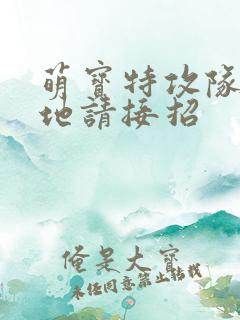 萌寶特攻隊
地請接招
俺是大寶
未经同意禁止转载